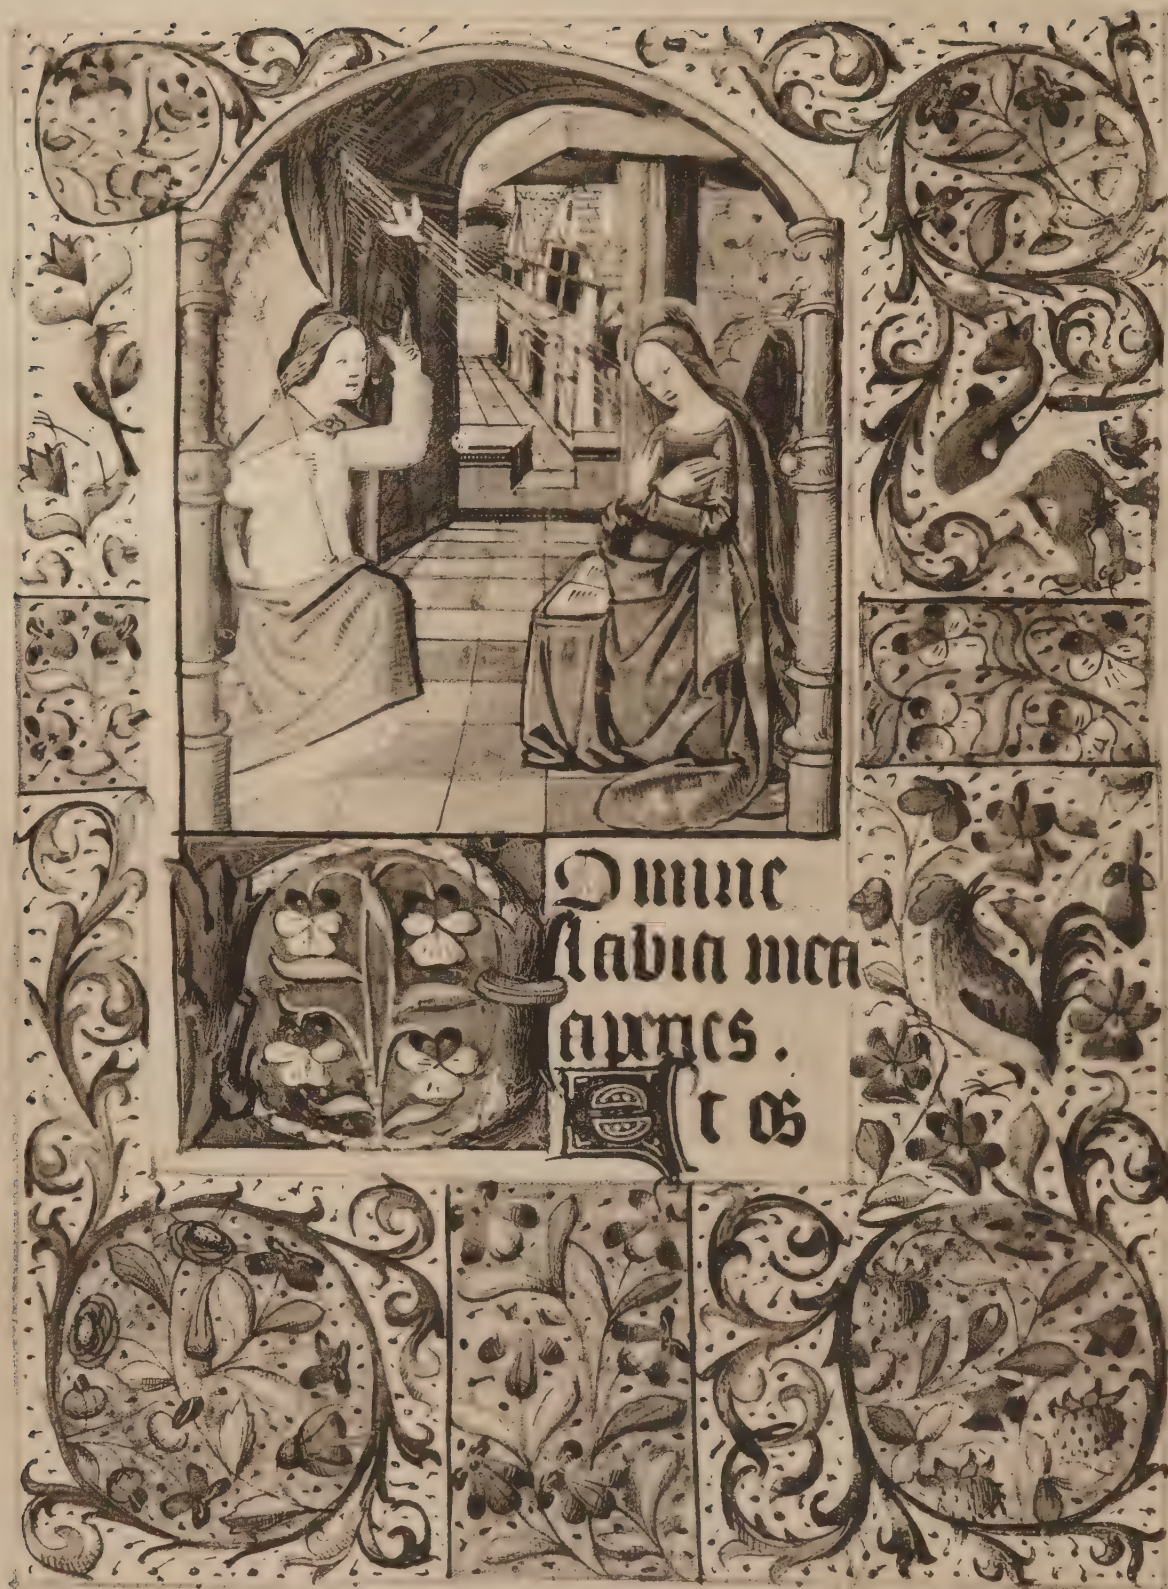 DOmine
labia mea
aperies.
Et os